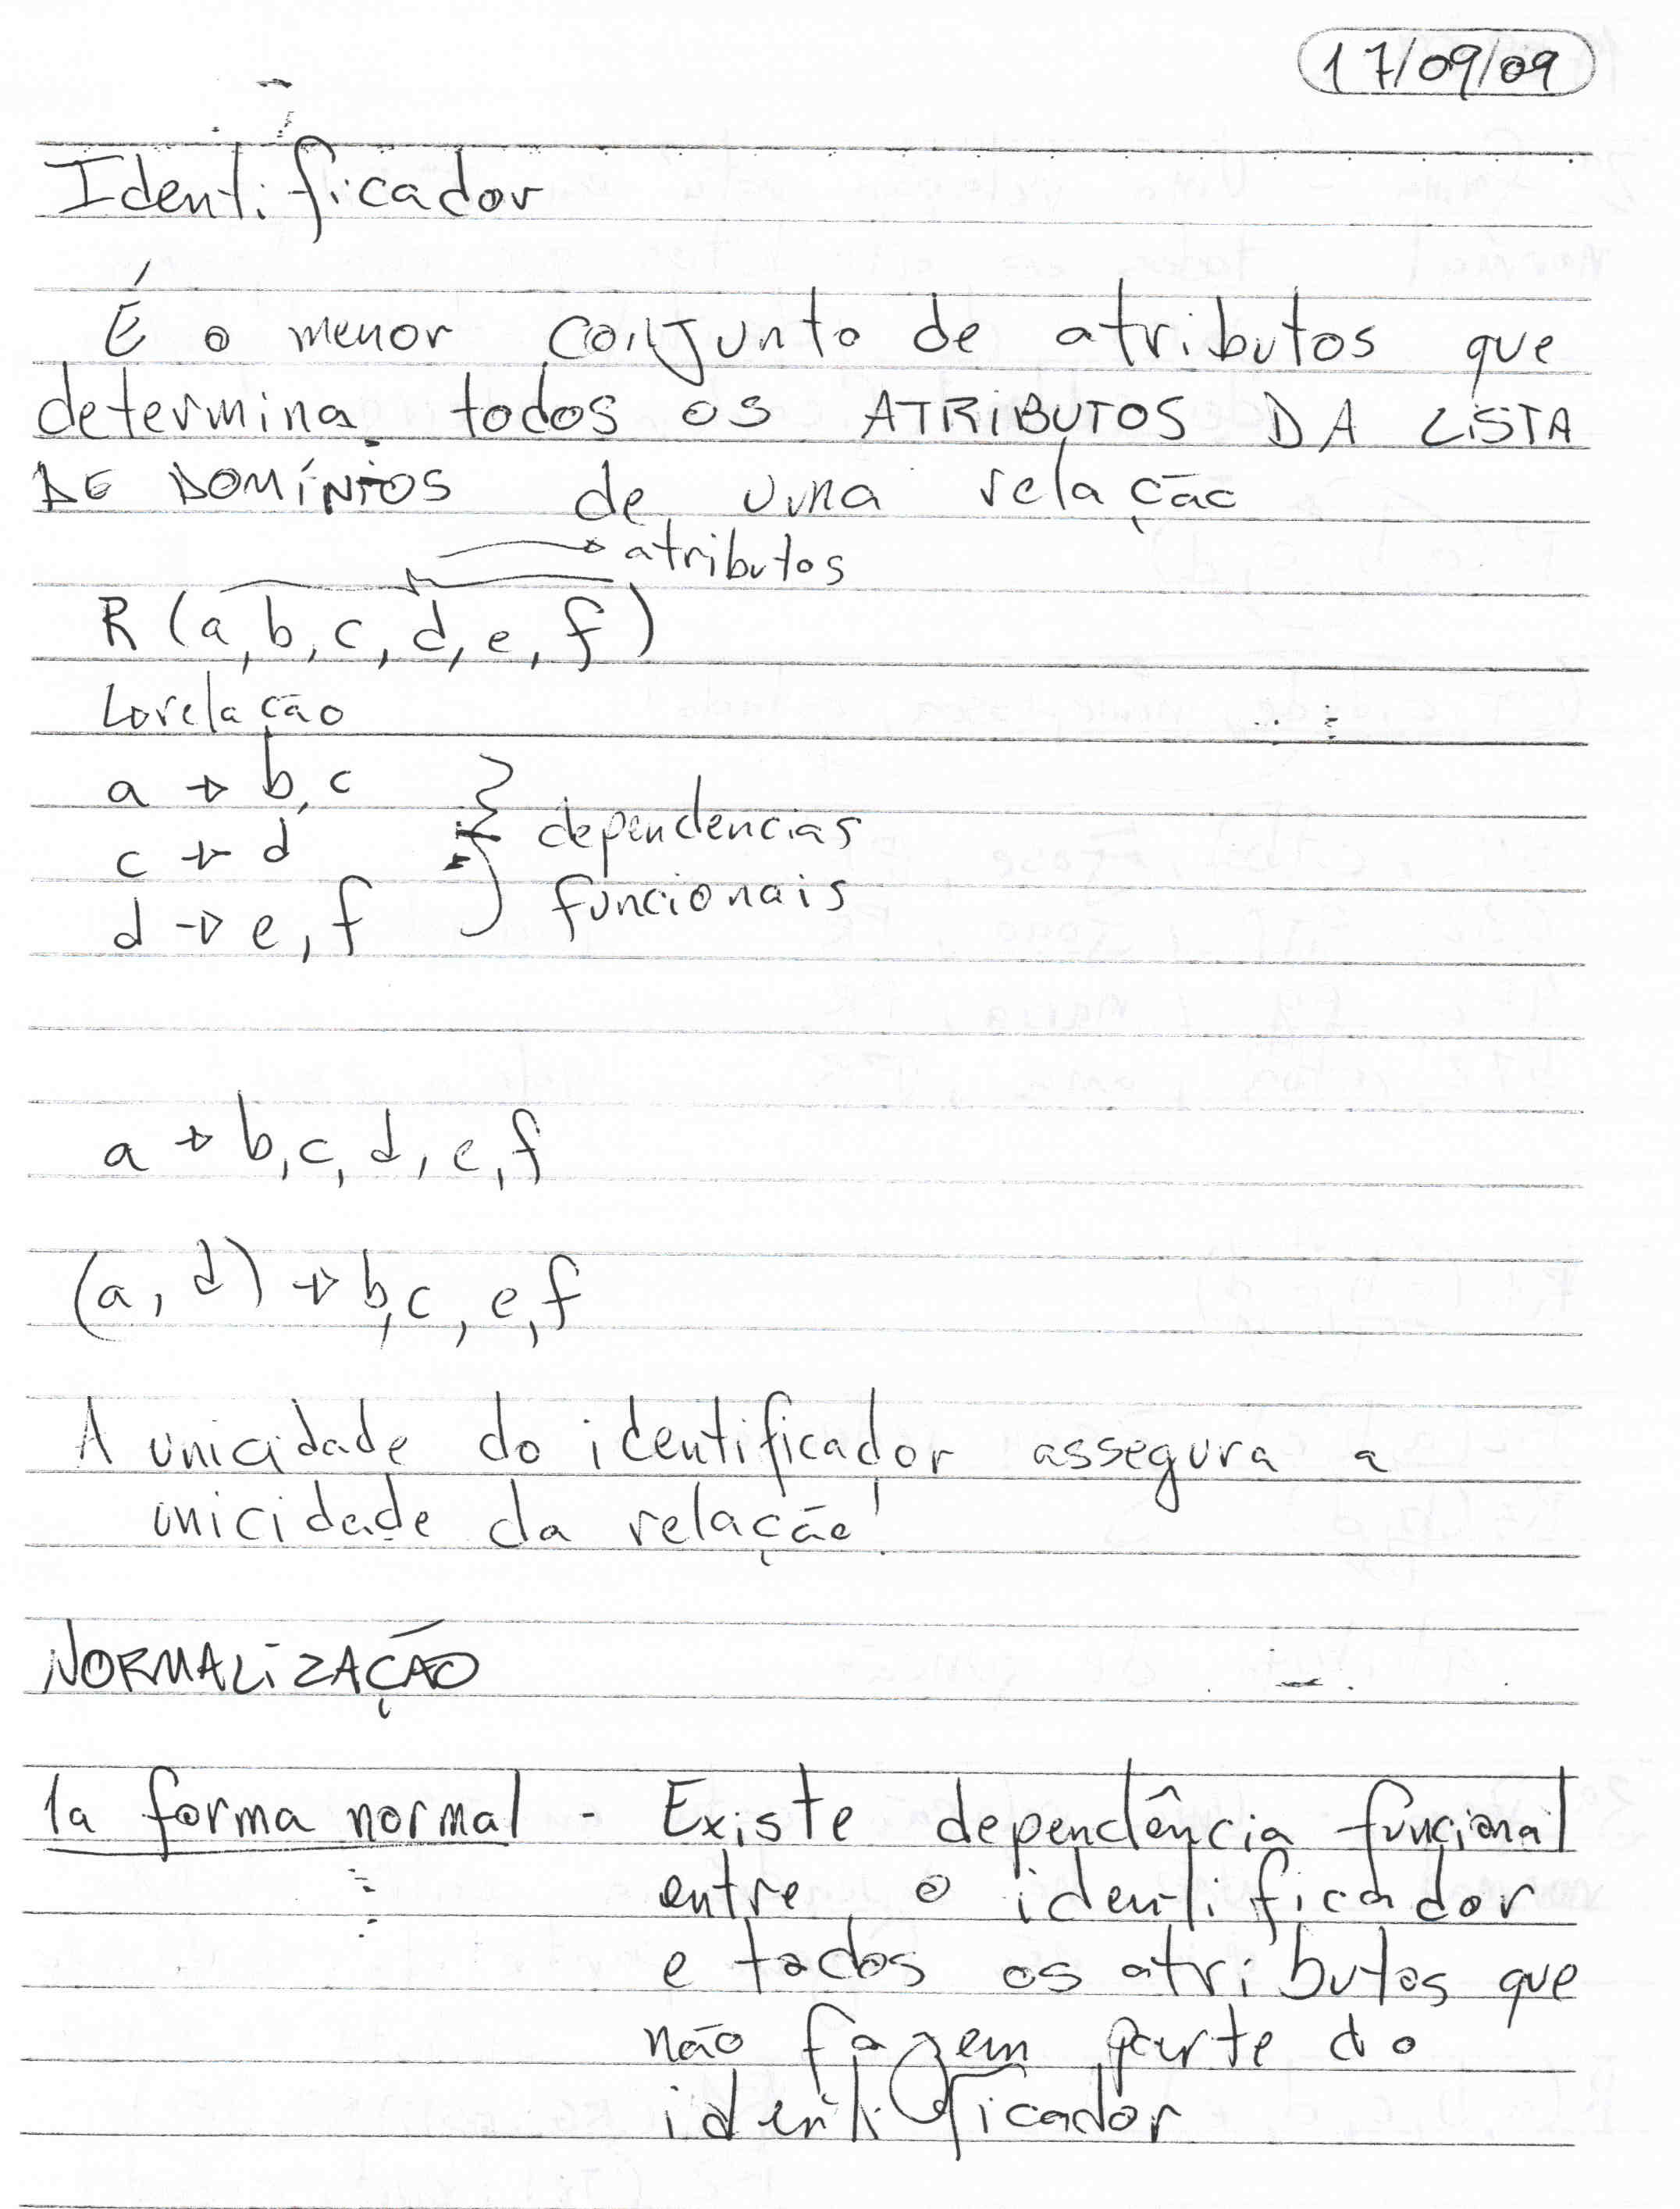 17/09/09
Identificador
É o menor conjunto de atributos que
determina todos os ATRIBUTOS DA LISTA
DE DOMÍNIOS de uma relação
→ atributos
R (a, b, c, d, e, f)
↳ relação
a → b, c
c → d
dependencias
d → e, f
funcionais
a → b, c, d, e, f
(a, d) → b, c, e, f
A unicidade do identificador assegura a
unicidade da relação!
NORMALIZAÇÃO
1a forma normal - Existe dependência funcional
entre o identificador
e todos os atributos que
não fazem parte do
identificador